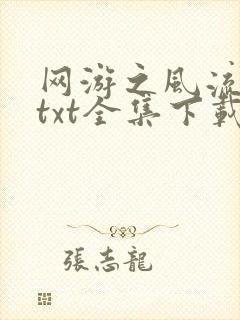 网游之风流
txt全集下載
張志龍